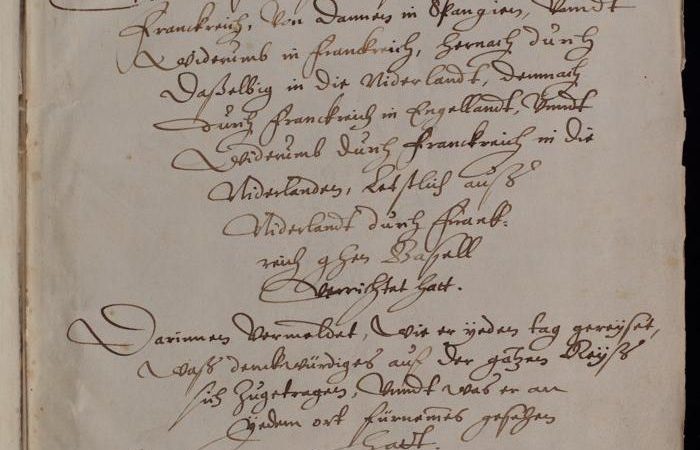 Franckreich, Von dannen in Spangien, Vnndt
Widerumb in Franckreich, hernach durch
daßelbig in die Niderlandt, demnach
durch Franckreich in Engellandt, Vnndt
Widerumb durch Franckreich in die
Niderlanden, Letstlich auß
Niderlandt durch Franck-
reich ghen Basell
verrichtet hatt.
Darinnen Vermeldet, Wie er yeden tag gereyset,
Waß denckwürdiges auf der gantzen Reyß
sich Zugetragen, Vnndt was er an
yedem ort fürnemes gesehen
hatt.